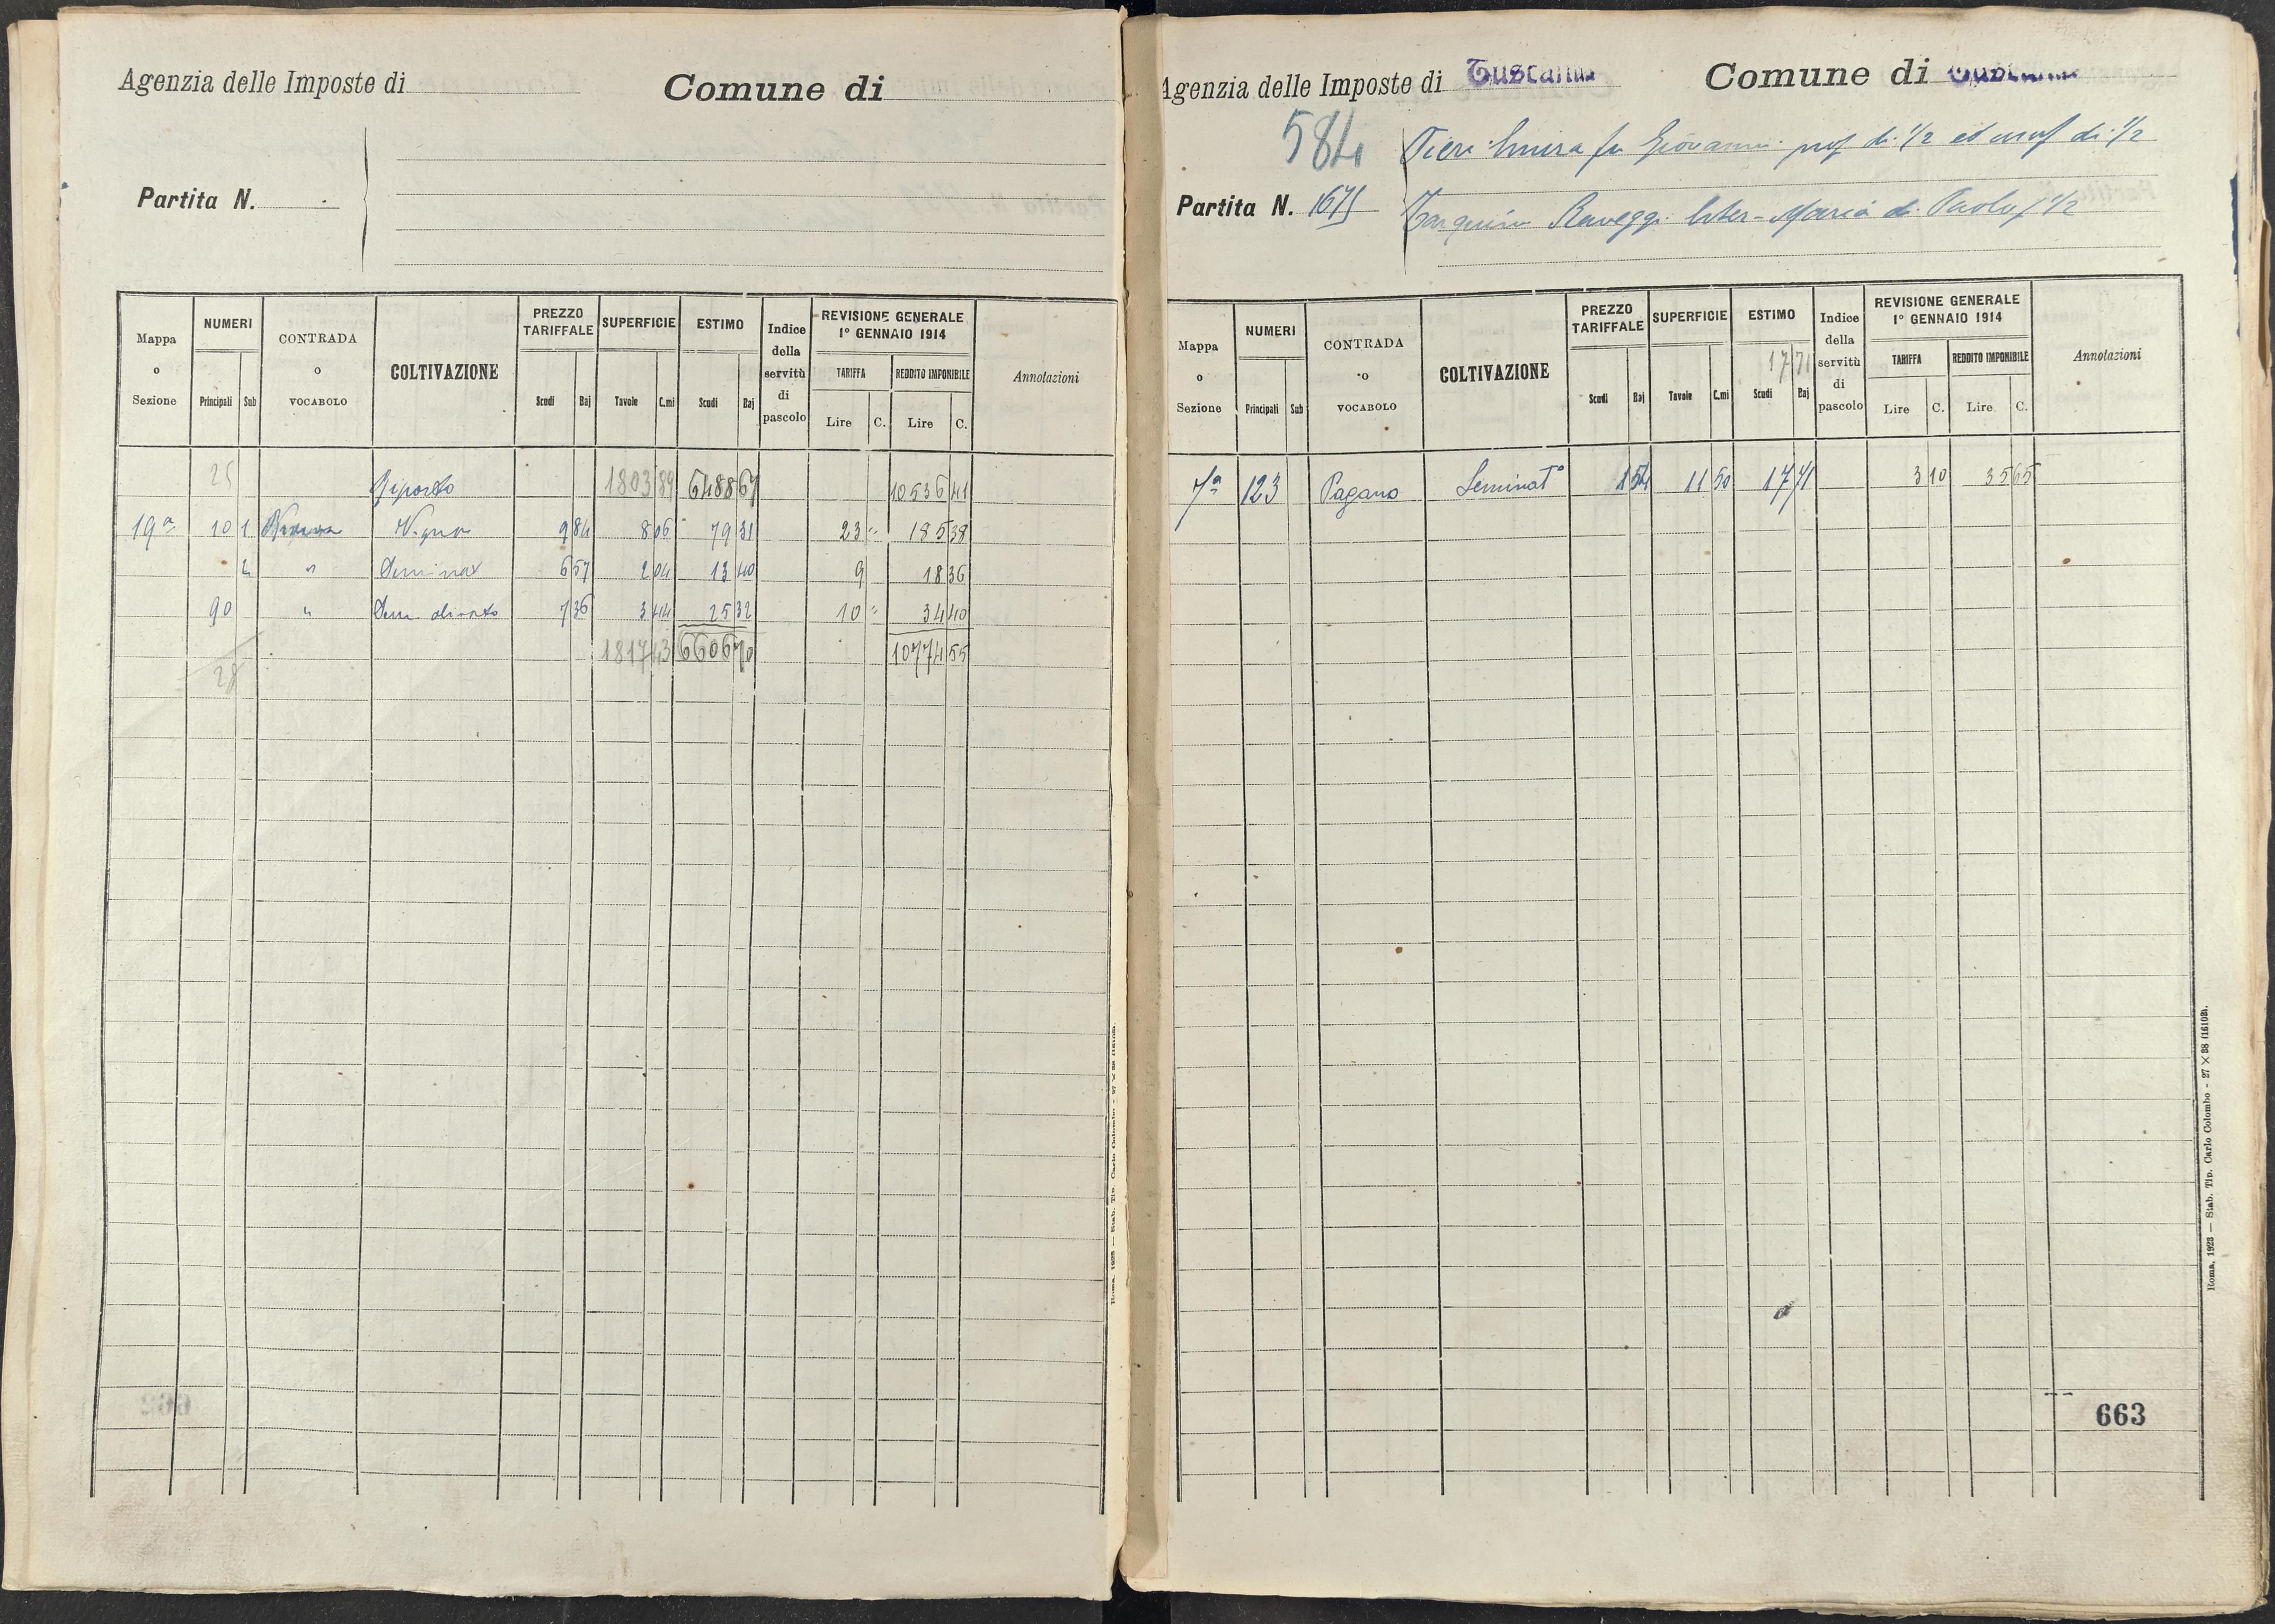 Agenzia delle Imposte di
Comune di
Partita N.
Mappa o Sezione
NUMERI
Principali
Sub
CONTRADA o VOCABOLO
COLTIVAZIONE
PREZZO TARIFFALE
Scudi
Baj
SUPERFICIE
Tavole
C.mi
ESTIMO
Scudi
Baj
Indice della servitù di pascolo
REVISIONE GENERALE
1° GENNAIO 1914
TARIFFA
REDDITO IMPONIBILE
Lire C. Lire C.
Annotazioni
25 Riporto 1803 89 6488 67 10536 41
19a 10 1 Vigna 9 84 8 06 79 31 23 " 185 38
2 " Seminat 6 57 2 04 13 40 9 18 36
90 " Sem. olivato 7 36 3 44 25 32 10 " 34 40
1817 43 6606 70 10774 55
28
Agenzia delle Imposte di Tuscania
Comune di Tuscania
584
Partita N. 1675
Pieri fu Giovanni prop di 1/2 ed usuf di 1/2
Tarquini Raveggi Ester-Maria di Paolo p 1/2
Mappa o Sezione
NUMERI
Principali
Sub
CONTRADA o VOCABOLO
COLTIVAZIONE
PREZZO TARIFFALE
Scudi
Baj
SUPERFICIE
Tavole
C.mi
ESTIMO
17 71
Scudi
Baj
Indice della servitù di pascolo
REVISIONE GENERALE
1° GENNAIO 1914
TARIFFA
REDDITO IMPONIBILE
Lire C. Lire C.
Annotazioni
7a 123 Pagano Seminat° 1 54 11 50 17 71 3 10 35 65
663
Roma, 1923 — Stab. Tip. Carlo Colombo - 27 × 38